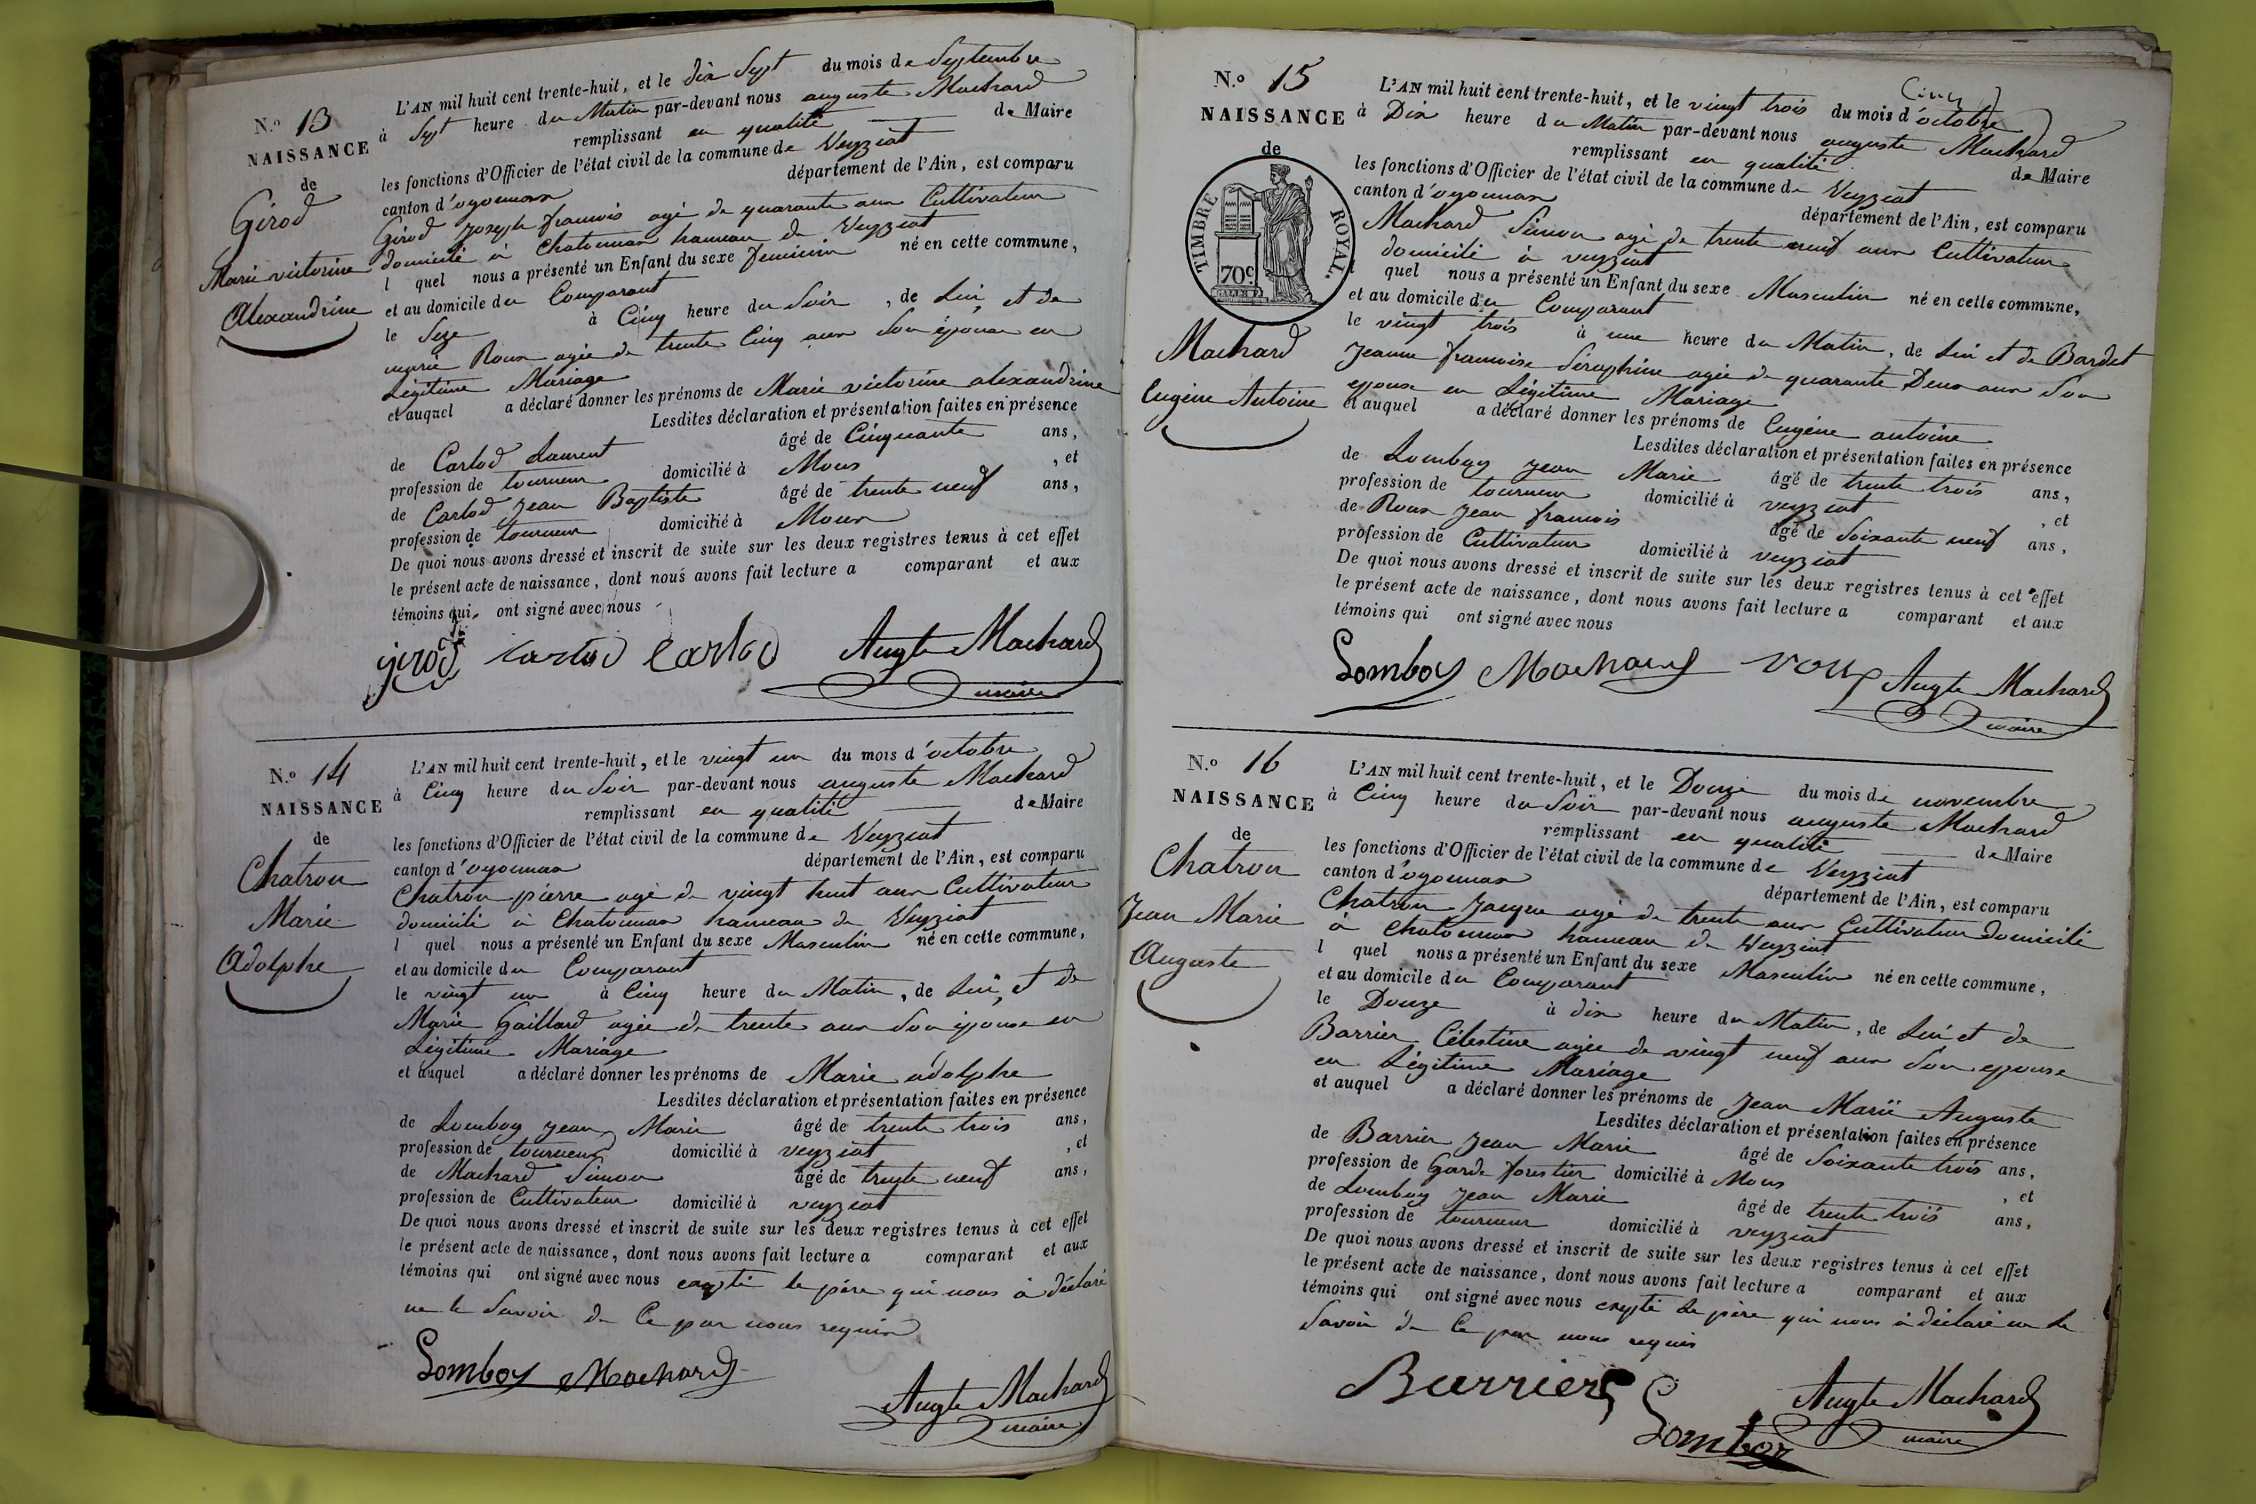 N.º 13
NAISSANCE
de
Girod
Marie victorine
Alexandrine
L'AN mil huit cent trente-huit, et le dix Sept du mois de Septembre
à Sept heure du Matin par-devant nous auguste Machard
remplissant en qualité de Maire
les fonctions d'Officier de l'état civil de la commune de Veyziat
canton d'oyonnax département de l'Ain, est comparu
Girod Joseph francois agé de quarante ans Cultivateur
domicilié à Chatonnax hameau de Veyziat
l quel nous a présenté un Enfant du sexe feminin né en cette commune,
et au domicile du Comparant
le Seze à Cinq heure du Soir, de Lui et de
marie Roux agée de trente Cinq ans Son épouse en
Légitime Mariage
et auquel a déclaré donner les prénoms de Marie victorine alexandrine
Lesdites déclaration et présentation faites en présence
de Carlod Laurent âgé de Cinquante ans,
profession de tourneur domicilié à Mons, et
de Carlod Jean Baptiste âgé de trente neuf ans,
profession de tourneur domicilié à Mons
De quoi nous avons dressé et inscrit de suite sur les deux registres tenus à cet effet
le présent acte de naissance, dont nous avons fait lecture a comparant et aux
témoins qui ont signé avec nous
girod carlod Carlod Augte Machard
maire
N.º 14
NAISSANCE
de
Chatron
Marie
Adolphe
L'AN mil huit cent trente-huit, et le vingt un du mois d'octobre
à Cinq heure du Soir par-devant nous auguste Machard
remplissant en qualité de Maire
les fonctions d'Officier de l'état civil de la commune de Veyziat
canton d'oyonnax département de l'Ain, est comparu
Chatron pierre agé de vingt huit ans Cultivateur
domicilié à Chatonnax hameau de Veyziat
l quel nous a présenté un Enfant du sexe Masculin né en cette commune,
et au domicile du Comparant
le vingt un à Cinq heure du Matin, de Lui, et de
Marie Gaillard agée de trente ans Son épouse en
Légitime Mariage
et auquel a déclaré donner les prénoms de Marie adolphe
Lesdites déclaration et présentation faites en présence
de Lomboy Jean Marie âgé de trente trois ans,
profession de tourneur domicilié à veyziat, et
de Machard Simon âgé de trente neuf ans,
profession de Cultivateur domicilié à veyziat
De quoi nous avons dressé et inscrit de suite sur les deux registres tenus à cet effet
le présent acte de naissance, dont nous avons fait lecture a comparant et aux
témoins qui ont signé avec nous excepté le père qui nous à déclaré
ne le Savoir de Ce par nous requis
Lomboy Machard Augte Machard
maire
N.º 15
NAISSANCE
de
TIMBRE ROYAL.
70c
Machard
Eugène Antoine
L'AN mil huit cent trente-huit, et le vingt trois du mois d'octobre
à Dix heure du Matin par-devant nous auguste Machard
remplissant en qualité de Maire
les fonctions d'Officier de l'état civil de la commune de Veyziat
canton d'oyonnax département de l'Ain, est comparu
Machard Simon agé de trente neuf ans Cultivateur
domicilié à veyziat
quel nous a présenté un Enfant du sexe Masculin né en cette commune,
et au domicile du Comparant
le vingt trois à une heure du Matin, de Lui et de Bardet
Jeanne francoise Séraphine agée de quarante Deux ans Son
epouse en Légitime Mariage
et auquel a déclaré donner les prénoms de Eugène antoine
Lesdites déclaration et présentation faites en présence
de Lomboy Jean Marie âgé de trente trois ans,
profession de tourneur domicilié à veyziat, et
de Roux Jean francois âgé de Soixante neuf ans,
profession de Cultivateur domicilié à veyziat
De quoi nous avons dressé et inscrit de suite sur les deux registres tenus à cet effet
le présent acte de naissance, dont nous avons fait lecture a comparant et aux
témoins qui ont signé avec nous
Lomboy Machard roux Augte Machard
maire
N.º 16
NAISSANCE
de
Chatron
Jean Marie
Auguste
L'AN mil huit cent trente-huit, et le Douze du mois de novembre
à Cinq heure du Soir par-devant nous auguste Machard
remplissant en qualité de Maire
les fonctions d'Officier de l'état civil de la commune de Veyziat
canton d'oyonnax département de l'Ain, est comparu
Chatron Jacque agé de trente ans Cultivateur domicilié
à Chatonnax hameau de Veyziat
l quel nous a présenté un Enfant du sexe Masculin né en cette commune,
et au domicile du Comparant
le Douze à dix heure du Matin, de Lui et de
Barrier Célestine agée de vingt neuf ans Son epouse
en Légitime Mariage
et auquel a déclaré donner les prénoms de Jean Marie Auguste
Lesdites déclaration et présentation faites en présence
de Barrier Jean Marie âgé de Soixante trois ans,
profession de Garde forestier domicilié à Mons, et
de Lomboy Jean Marie âgé de trente trois ans,
profession de tourneur domicilié à veyziat
De quoi nous avons dressé et inscrit de suite sur les deux registres tenus à cet effet
le présent acte de naissance, dont nous avons fait lecture a comparant et aux
témoins qui ont signé avec nous excepté Le père qui nous à déclaré ne le
Savoir de Ce par nous requis
Barrier Lomboy Augte Machard
maire